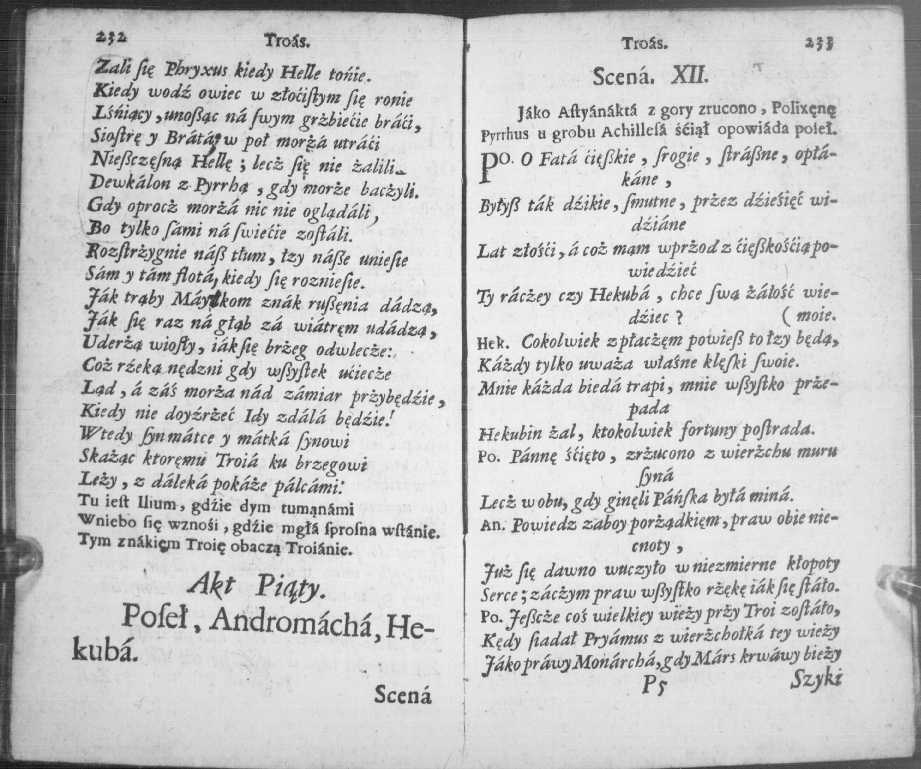 232
Troás.
Zali ſię Phryxus kiedy Helle tońie.
Kiedy wodź owiec w złoćiſtym ſię ronie
Lśniący, unoßąc ná ſwym grżbiećie bráći,
Sioſtrę y Brátá, w poł morżá utráći
Nießczęſną Hellę; lecż ſię nie żalili
Dewkálon z Pyrrhą, gdy morże bacżyli.
Gdy oprocż morżá nic nie oglądáli,
Bo tylko ſámi ná ſwiećie zoſtáli.
Rozſtrżygnie náß tłum, łzy náße unieſie
Sám y tám flotá, kiedy ſię roznieſie.
Ják trąby Máytkom znák rußęnia dádzą,
Ják ſię raz ná głąb zá wiátręm udádzą,
Uderżą wioſły, iák ſię brżeg odwlecże:
Coż rźeką nędzni gdy wßyſtek ućiecże
Ląd, á záś morża nád zámiar przybędźie,
Kiedy nie doyźrżeć Idy zdálá będźie!
Wtedy ſyn mátce y mátká ſynowi
Skażąc ktoręmu Troiá ku brzegowi
Leży, z dáleká pokáże pálcámi:
Tu ieſt Ilium, gdźie dym tumąnámi
Wniebo ſię wznośi, gdźie mgłá ſproſna wſtánie.
Tym znákięm Troię obaczą Troiánie.
Akt Piąty.
Poſeł, Andromáchá, He-
kubá.
Scená
Troás.
233
Scená. XII.
Jáko Aſtyánáktá z gory zrucono, Polixęnę
Pyrrhus u grobu Achilleſá śćiął opowiáda poſeł.
Po. O Fatá ćięßkie, ſrogie, ſtráßne, opłá-
káne,
Byłyß ták dźikie, ſmutne, przez dźieśięć wi-
dźiáne
Lat złośći, á coż mąm wprżod z ćięßkośćią po-
wiedźieć
Ty ráczey czy Hekubá, chce ſwą żáłość wie-
dźiec? ( moie.
Hek. Cokolwiek z płaczęm powieß to łzy będą,
Káżdy tylko uważa właśne klęſki ſwoie.
Mnie káżda biedá trapi, mnie wßyſtko prże-
pada
Hekubin żal, ktokolwiek fortuny poſtrada.
Po. Pánnę śćięto, zrżucono z wierżchu muru
ſyná
Lecż w obu, gdy ginęli Páńſka byłá miná.
An. Powiedz zaboy porżądkięm, praw obie nie-
cnoty,
Już ſię dawno wuczyło w niezmierne kłopoty
Serce; zácżym praw wßyſtko rżękę iák ſię ſtáło.
Po. Jeſzcże coś wielkiey wieży prży Troi zoſtáło,
Kędy ſiadał Pryámus z wierżchołká tey wieży
Jáko práwy Monárchá, gdy Márs krwáwy bieży
P5
Szyki